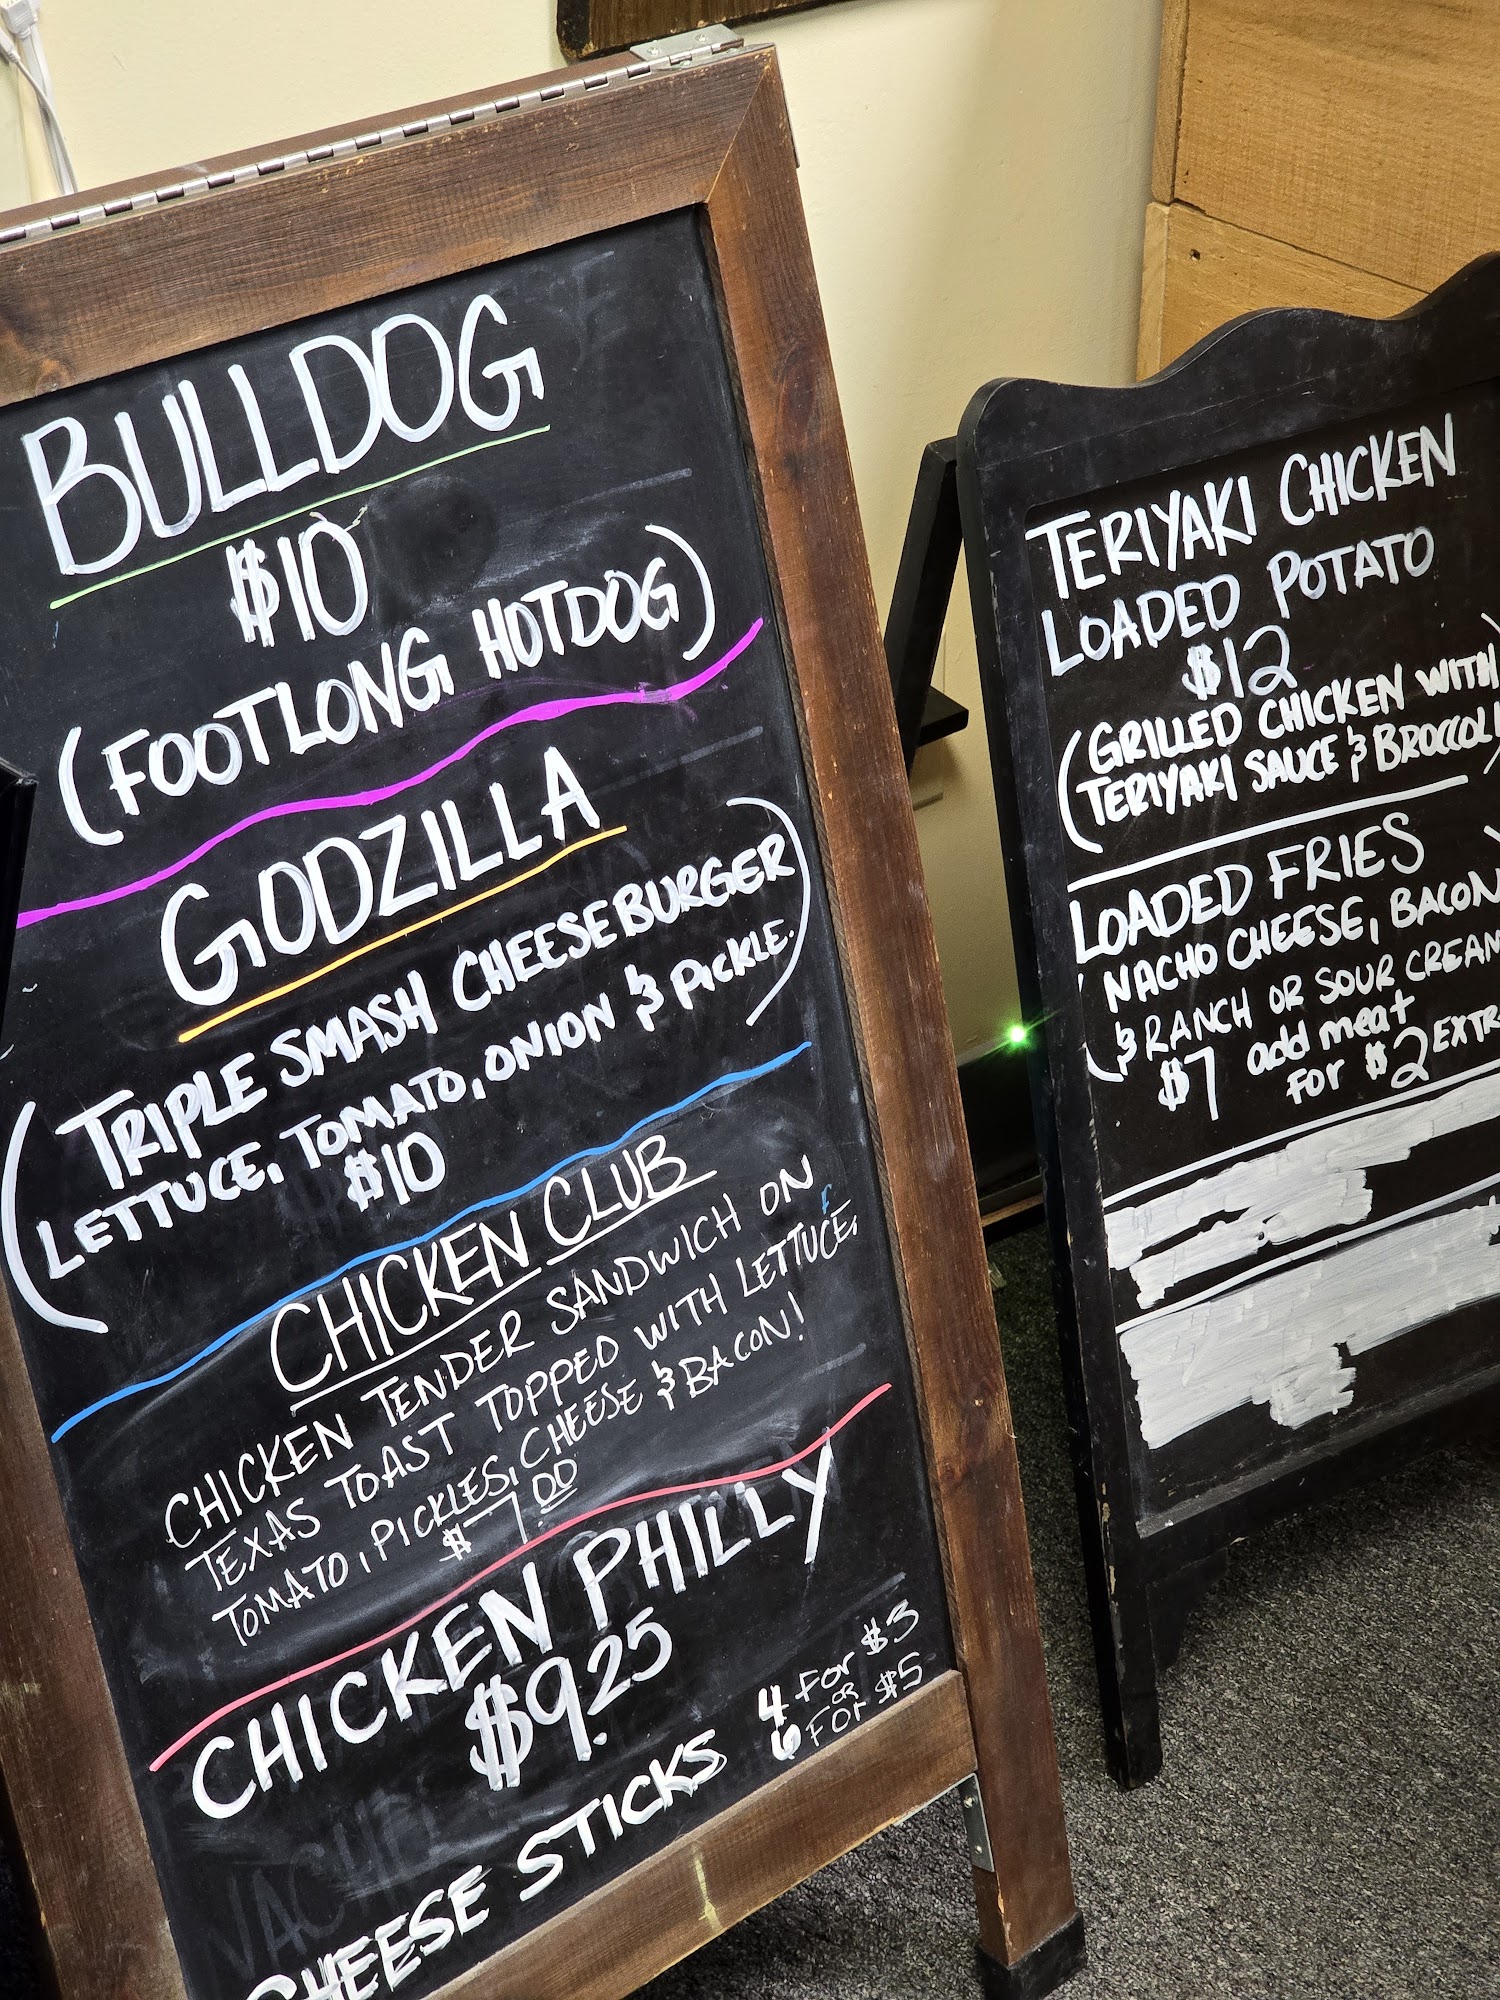 BULLDOG
$10
(FOOTLONG HOTDOG)
GODZILLA
(TRIPLE SMASH CHEESEBURGER
LETTUCE, TOMATO, ONION & PICKLE.)
$10
CHICKEN CLUB
CHICKEN TENDER SANDWICH ON
TEXAS TOAST TOPPED WITH LETTUCE,
TOMATO, PICKLES, CHEESE & BACON!
$7.00
CHICKEN PHILLY
$9.25
CHEESE STICKS
4 FOR $3
OR
6 FOR $5
TERIYAKI CHICKEN
LOADED POTATO
$12
(GRILLED CHICKEN WITH
TERIYAKI SAUCE & BROCCOLI)
LOADED FRIES
(NACHO CHEESE, BACON
& RANCH OR SOUR CREAM
$7 add meat
FOR $2 EXTR